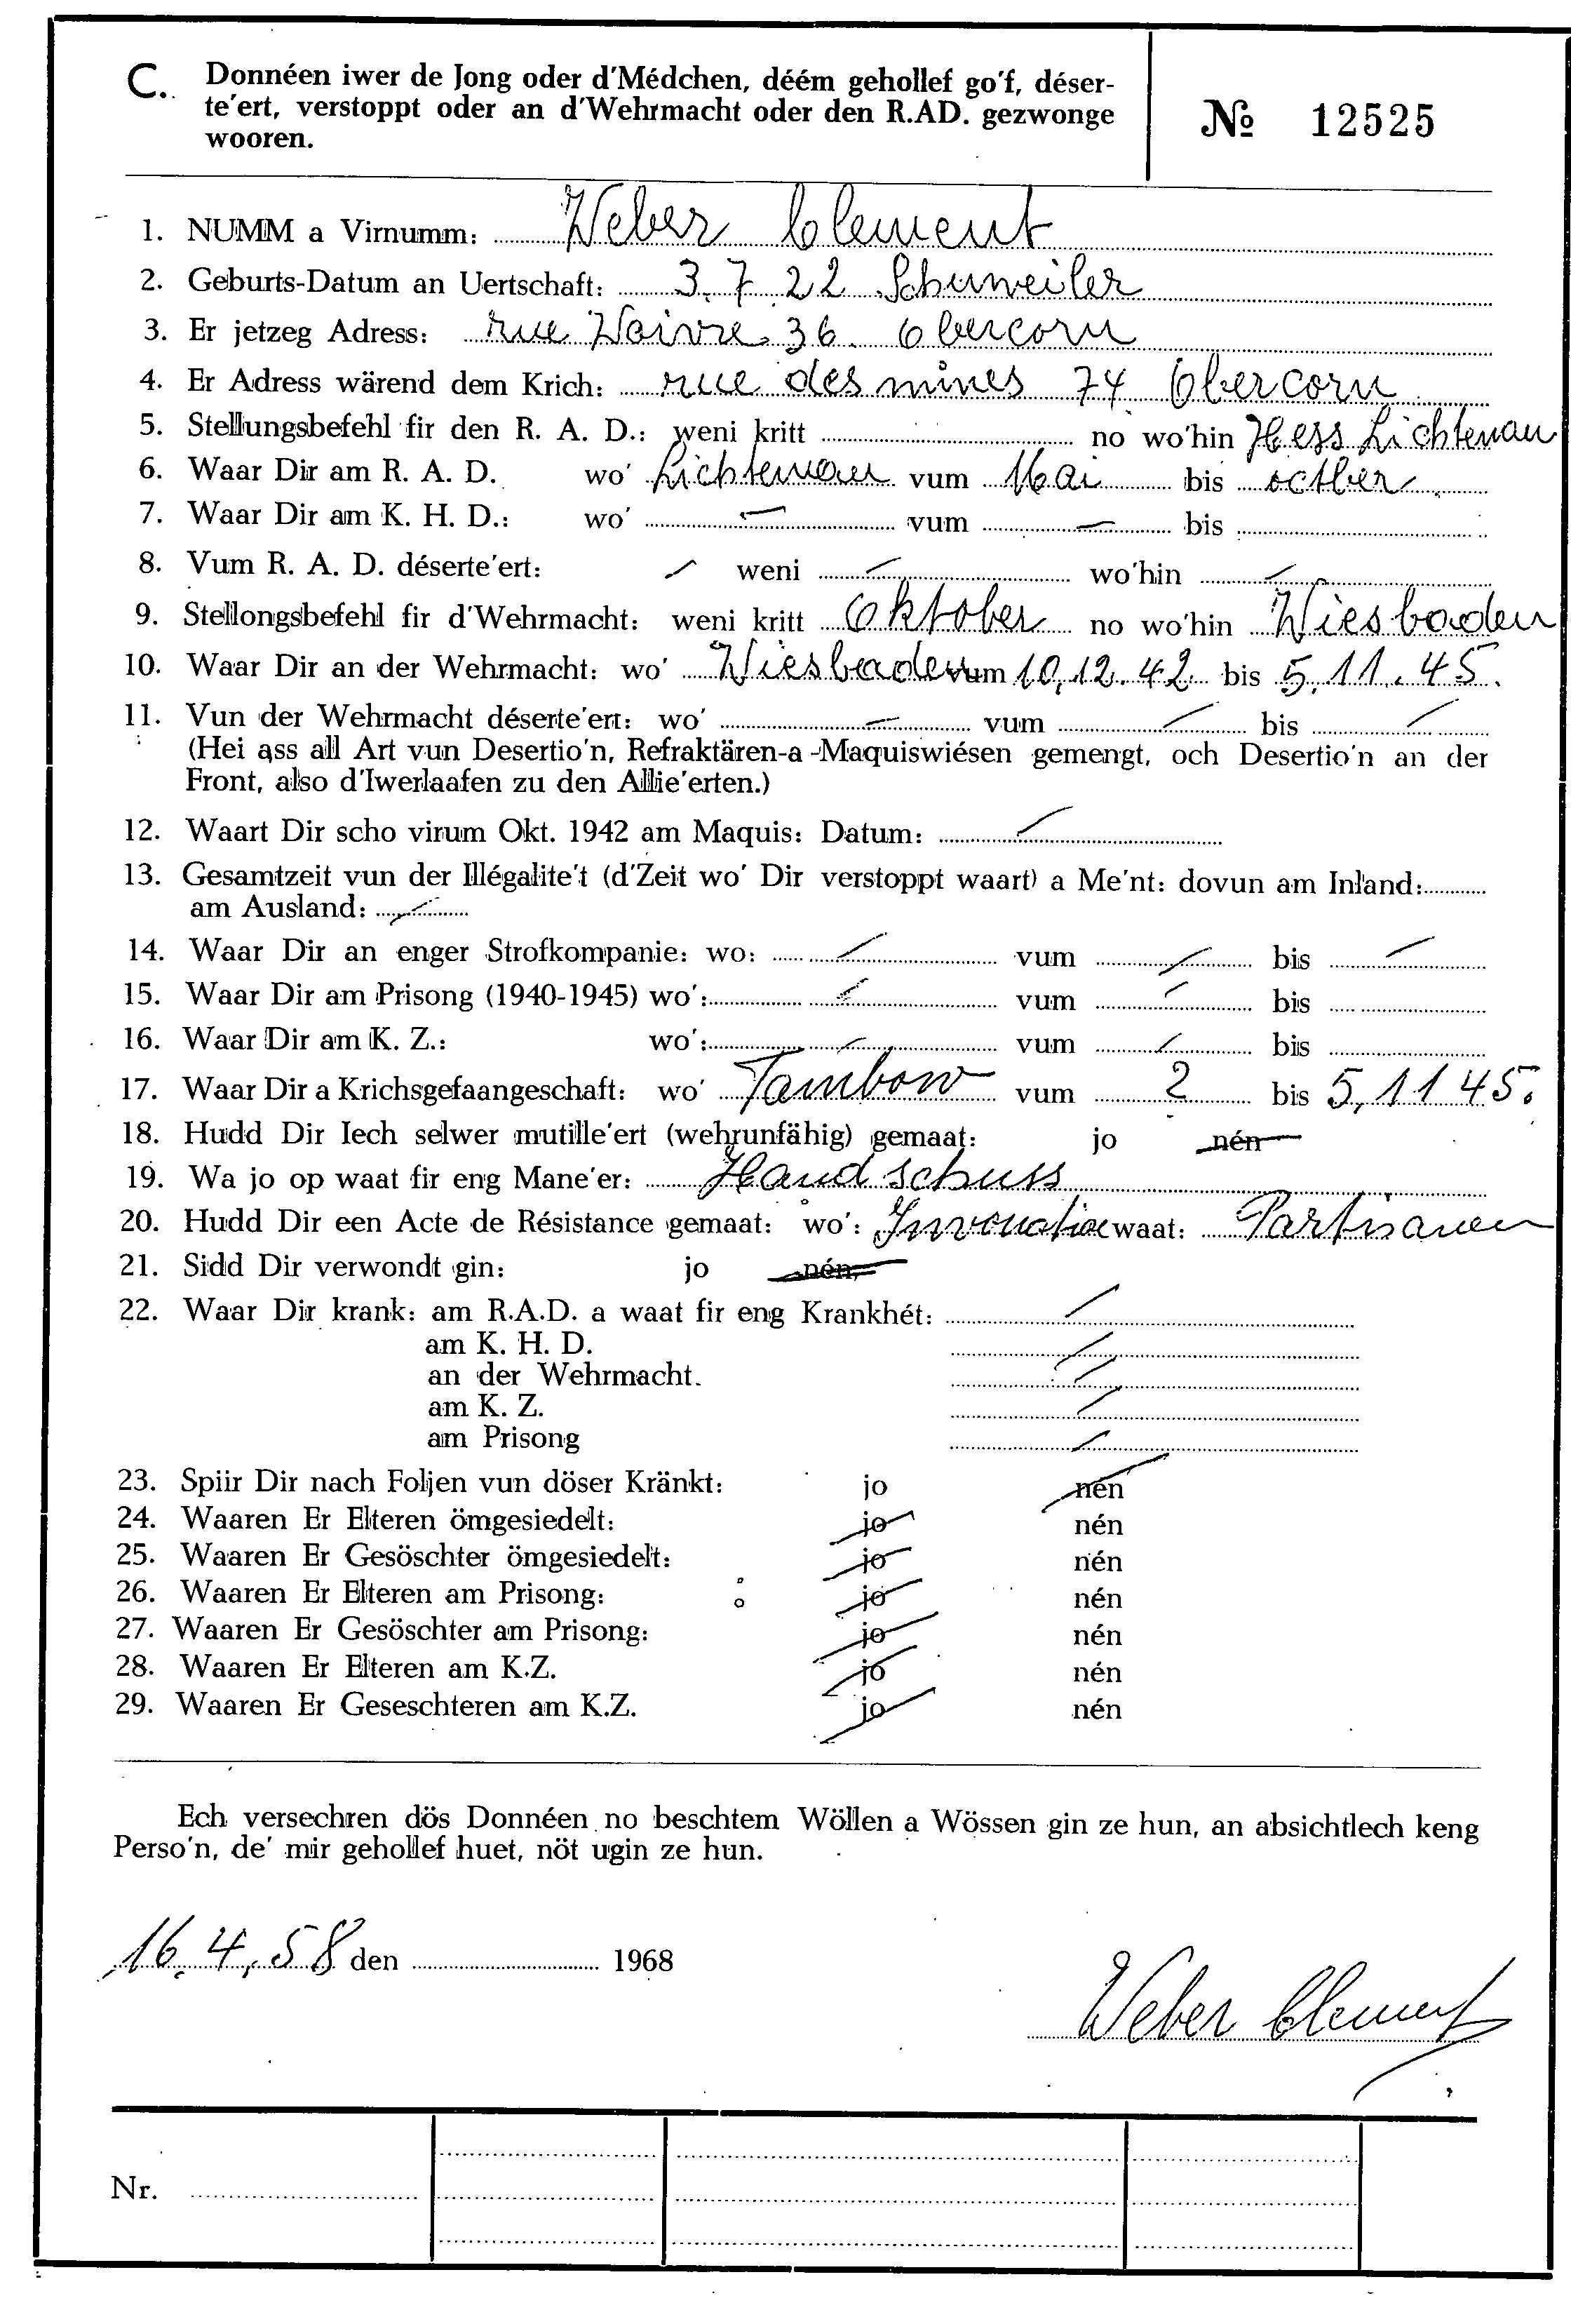 C. Donnéen iwer de Jong oder d'Médchen, déém gehollef go'f, déser-
te'ert, verstoppt oder an d'Wehrmacht oder den R.AD. gezwonge
wooren.
№ 12525
1. NUMM a Virnumm: Weber Clement
2. Geburts-Datum an Uertschaft: 3.7.22 Schuweiler
3. Er jetzeg Adress: rue Woivre 36. Obercorn
4. Er Adress wärend dem Krich: rue des mines 74 Obercorn
5. Stellungsbefehl fir den R. A. D.: weni kritt no wo'hin Hess Lichtenau
6. Waar Dir am R. A. D. wo' Lichtenau vum Mai bis octber
7. Waar Dir am K. H. D.: wo' — vum — bis
8. Vum R. A. D. déserte'ert: / weni / wo'hin /
9. Stellongsbefehl fir d'Wehrmacht: weni kritt Oktober no wo'hin Wiesbaden
10. Waar Dir an der Wehrmacht: wo' Wiesbaden vum 10,12.42 bis 5.11.45.
11. Vun der Wehrmacht déserte'ert: wo' / vum / bis /
(Hei ass all Art vun Desertio'n, Refraktären-a -Maquiswiésen gemengt, och Desertio'n an der
Front, also d'Iwerlaafen zu den Allie'erten.)
12. Waart Dir scho virum Okt. 1942 am Maquis: Datum: /
13. Gesamtzeit vun der Illégalite't (d'Zeit wo' Dir verstoppt waart) a Me'nt: dovun am Inland:
am Ausland: /
14. Waar Dir an enger Strofkompanie: wo: / vum / bis /
15. Waar Dir am Prisong (1940-1945) wo': / vum / bis
16. Waar Dir am K. Z.: wo': / vum / bis
17. Waar Dir a Krichsgefaangeschaft: wo' Tambow vum 2 bis 5,11 45.
18. Hudd Dir Iech selwer mutille'ert (wehrunfähig) gemaat: jo nén
19. Wa jo op waat fir eng Mane'er: Handschuss
20. Hudd Dir een Acte de Résistance gemaat: wo': waat: Partisanen
21. Sidd Dir verwondt gin: jo nén,
22. Waar Dir krank: am R.A.D. a waat fir eng Krankhét: /
am K. H. D. /
an der Wehrmacht. /
am K. Z. /
am Prisong /
23. Spiir Dir nach Foljen vun döser Kränkt: jo nén
24. Waaren Er Elteren ömgesiedelt: jo nén
25. Waaren Er Gesöschter ömgesiedelt: jo nén
26. Waaren Er Elteren am Prisong: jo nén
27. Waaren Er Gesöschter am Prisong: jo nén
28. Waaren Er Elteren am K.Z. jo nén
29. Waaren Er Geseschteren am K.Z. jo nén
Ech versechren dös Donnéen no beschtem Wöllen a Wössen gin ze hun, an absichtlech keng
Perso'n, de' mir gehollef huet, nöt ugin ze hun.
16.4.58 den 1968
Weber Clement
Nr.